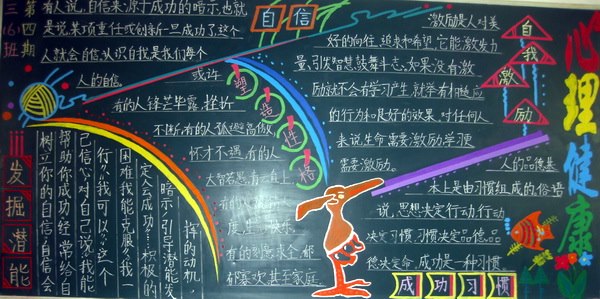 三(6)班
第四期
有人说,自信来源于成功的暗示,也就
是说,某项重任或创新一旦成功了,这个
人就会自信,认识自我是我们每个
人的自信
自信
塑造性格
或许
有的人锋芒毕露,挫折
不断,有的人孤避高傲
怀才不遇,有的人
大智若愚,青云直上
有的
有的刻意求全,郁
郁寡欢,甚至家庭
发掘潜能
挥的动机
暗示!引导潜能发
定会成功……积极的
困难我能克服!我一
行!我可以!这个
己信心,对自己说:我能
帮助你成功,经常给自
树立你的自信,自信会
激励是人对美
好的向往、追求和希望,它能激发力
量,引发智慧,鼓舞斗志,如果没有激
励就不会有学习产生,就举有相應
的行为和良好的效果,对任何人
来说生命需要激励,学习更
需要激励。
自我激励
人的品德基
本上是由习惯组成的,俗语
说,思想决定行动,行动
决定习惯,习惯决定品德,品
德决定命,成功是一种习惯
成功习惯
心理健康